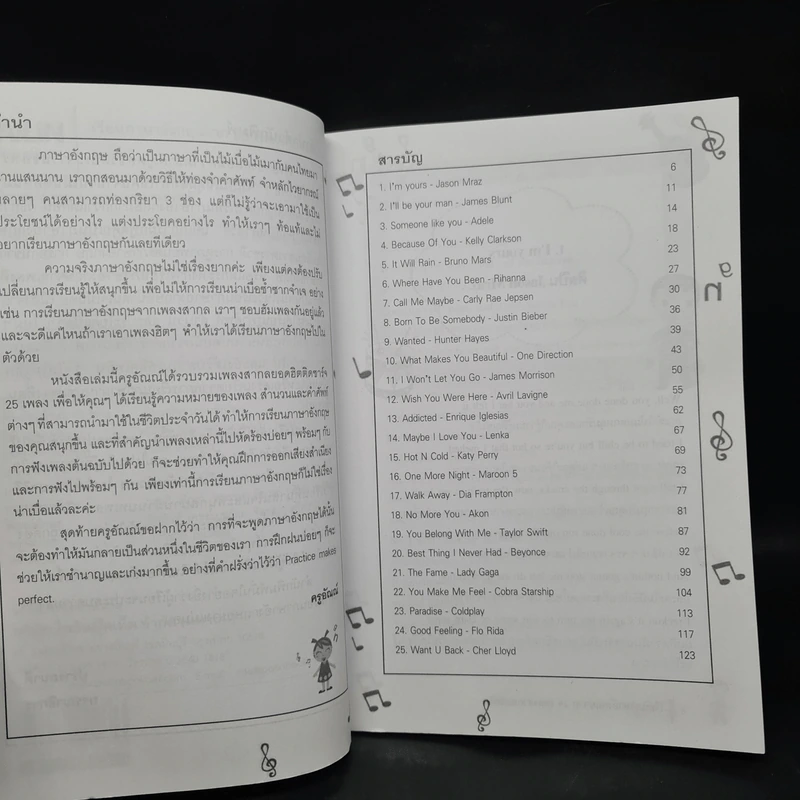 คำนำ
ภาษาอังกฤษ ถือว่าเป็นภาษาที่เป็นไม้เบื่อไม้เมากับคนไทยมา
นานแสนนาน เราถูกสอนมาด้วยวิธีให้ท่องจำคำศัพท์ จำหลักไวยากรณ์
หลายๆ คนสามารถท่องกริยา 3 ช่อง แต่ก็ไม่รู้ว่าจะเอามาใช้เป็น
ประโยชน์ได้อย่างไร แต่งประโยคอย่างไร ทำให้เราๆ ท้อแท้และไม่
อยากเรียนภาษาอังกฤษกันเลยทีเดียว
ความจริงภาษาอังกฤษไม่ใช่เรื่องยากค่ะ เพียงแต่คงต้องปรับ
เปลี่ยนการเรียนรู้ให้สนุกขึ้น เพื่อไม่ให้การเรียนน่าเบื่อซ้ำซากจำเจ อย่าง
เช่น การเรียนภาษาอังกฤษจากเพลงสากล เราๆ ชอบฮัมเพลงกันอยู่แล้ว
และจะดีแค่ไหนถ้าเราเอาเพลงฮิตๆ ทำให้เราได้เรียนภาษาอังกฤษไปใน
ตัวด้วย
หนังสือเล่มนี้ครูอัณณ์ได้รวบรวมเพลงสากลยอดฮิตติดชาร์จ
25 เพลง เพื่อให้คุณๆ ได้เรียนรู้ความหมายของเพลง สำนวนและคำศัพท์
ต่างๆ ที่สามารถนำมาใช้ในชีวิตประจำวันได้ ทำให้การเรียนภาษาอังกฤษ
ของคุณสนุกขึ้น และที่สำคัญนำเพลงเหล่านี้ไปหัดร้องบ่อยๆ พร้อมๆ กับ
การฟังเพลงต้นฉบับไปด้วย ก็จะช่วยทำให้คุณฝึกการออกเสียงสำเนียง
และการฟังไปพร้อมๆ กัน เพียงเท่านี้การเรียนภาษาอังกฤษก็ไม่ใช่เรื่อง
น่าเบื่อแล้วละค่ะ
สุดท้ายครูอัณณ์ขอฝากไว้ว่า การที่จะพูดภาษาอังกฤษได้นั้น
จะต้องทำให้มันกลายเป็นส่วนหนึ่งในชีวิตของเรา การฝึกฝนบ่อยๆ ก็จะ
ช่วยให้เราชำนาญและเก่งมากขึ้น อย่างที่คำฝรั่งว่าไว้ว่า Practice makes
perfect.
ครูอัณณ์
สารบัญ
1. I'm yours - Jason Mraz 6
2. I'll be your man - James Blunt 11
3. Someone like you - Adele 14
4. Because Of You - Kelly Clarkson 18
5. It Will Rain - Bruno Mars 23
6. Where Have You Been - Rihanna 27
7. Call Me Maybe - Carly Rae Jepsen 30
8. Born To Be Somebody - Justin Bieber 36
9. Wanted - Hunter Hayes 39
10. What Makes You Beautiful - One Direction 43
11. I Won't Let You Go - James Morrison 50
12. Wish You Were Here - Avril Lavigne 55
13. Addicted - Enrique Iglesias 62
14. Maybe I Love You - Lenka 67
15. Hot N Cold - Katy Perry 69
16. One More Night - Maroon 5 73
17. Walk Away - Dia Frampton 77
18. No More You - Akon 81
19. You Belong With Me - Taylor Swift 87
20. Best Thing I Never Had - Beyonce 92
21. The Fame - Lady Gaga 99
22. You Make Me Feel - Cobra Starship 104
23. Paradise - Coldplay 113
24. Good Feeling - Flo Rida 117
25. Want U Back - Cher Lloyd 123